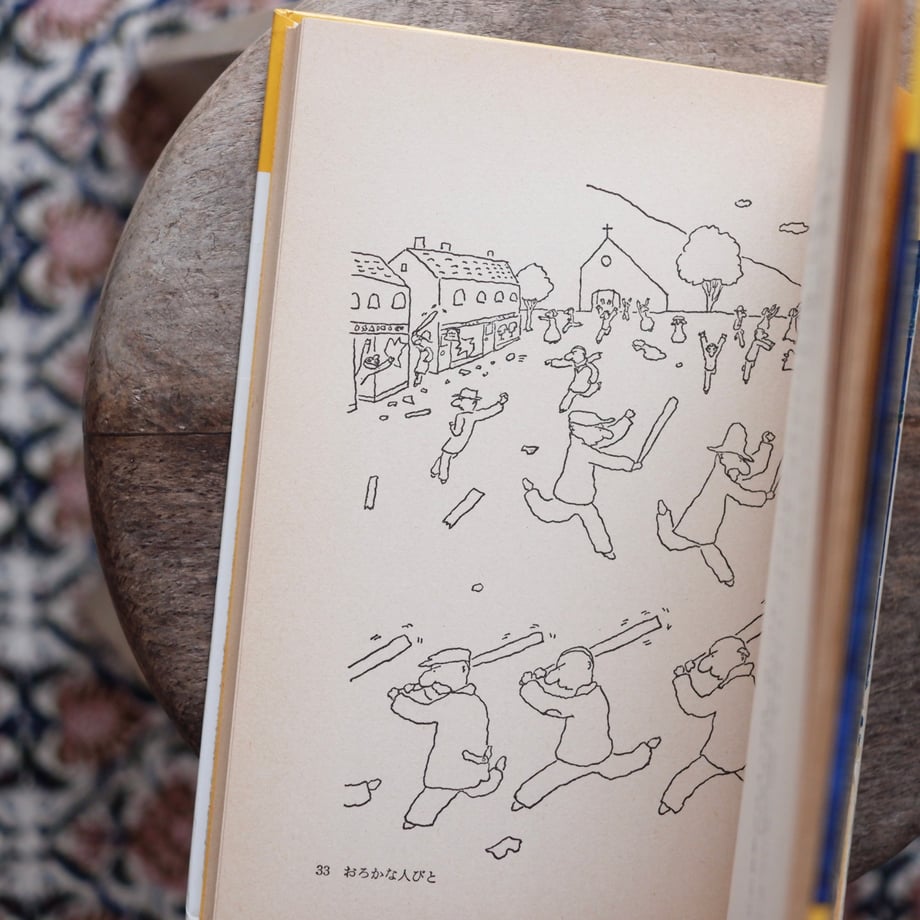 33 おろかな人びと